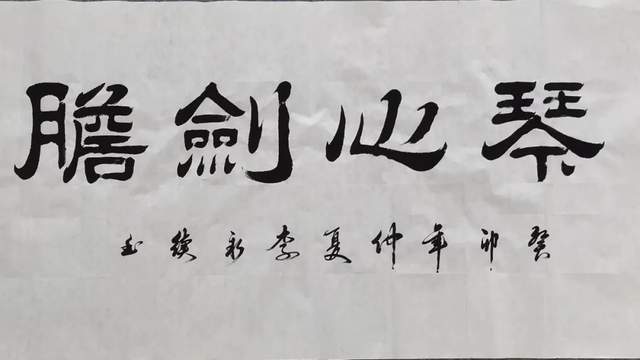 琴心劍膽
癸卯年仲夏李永緒書